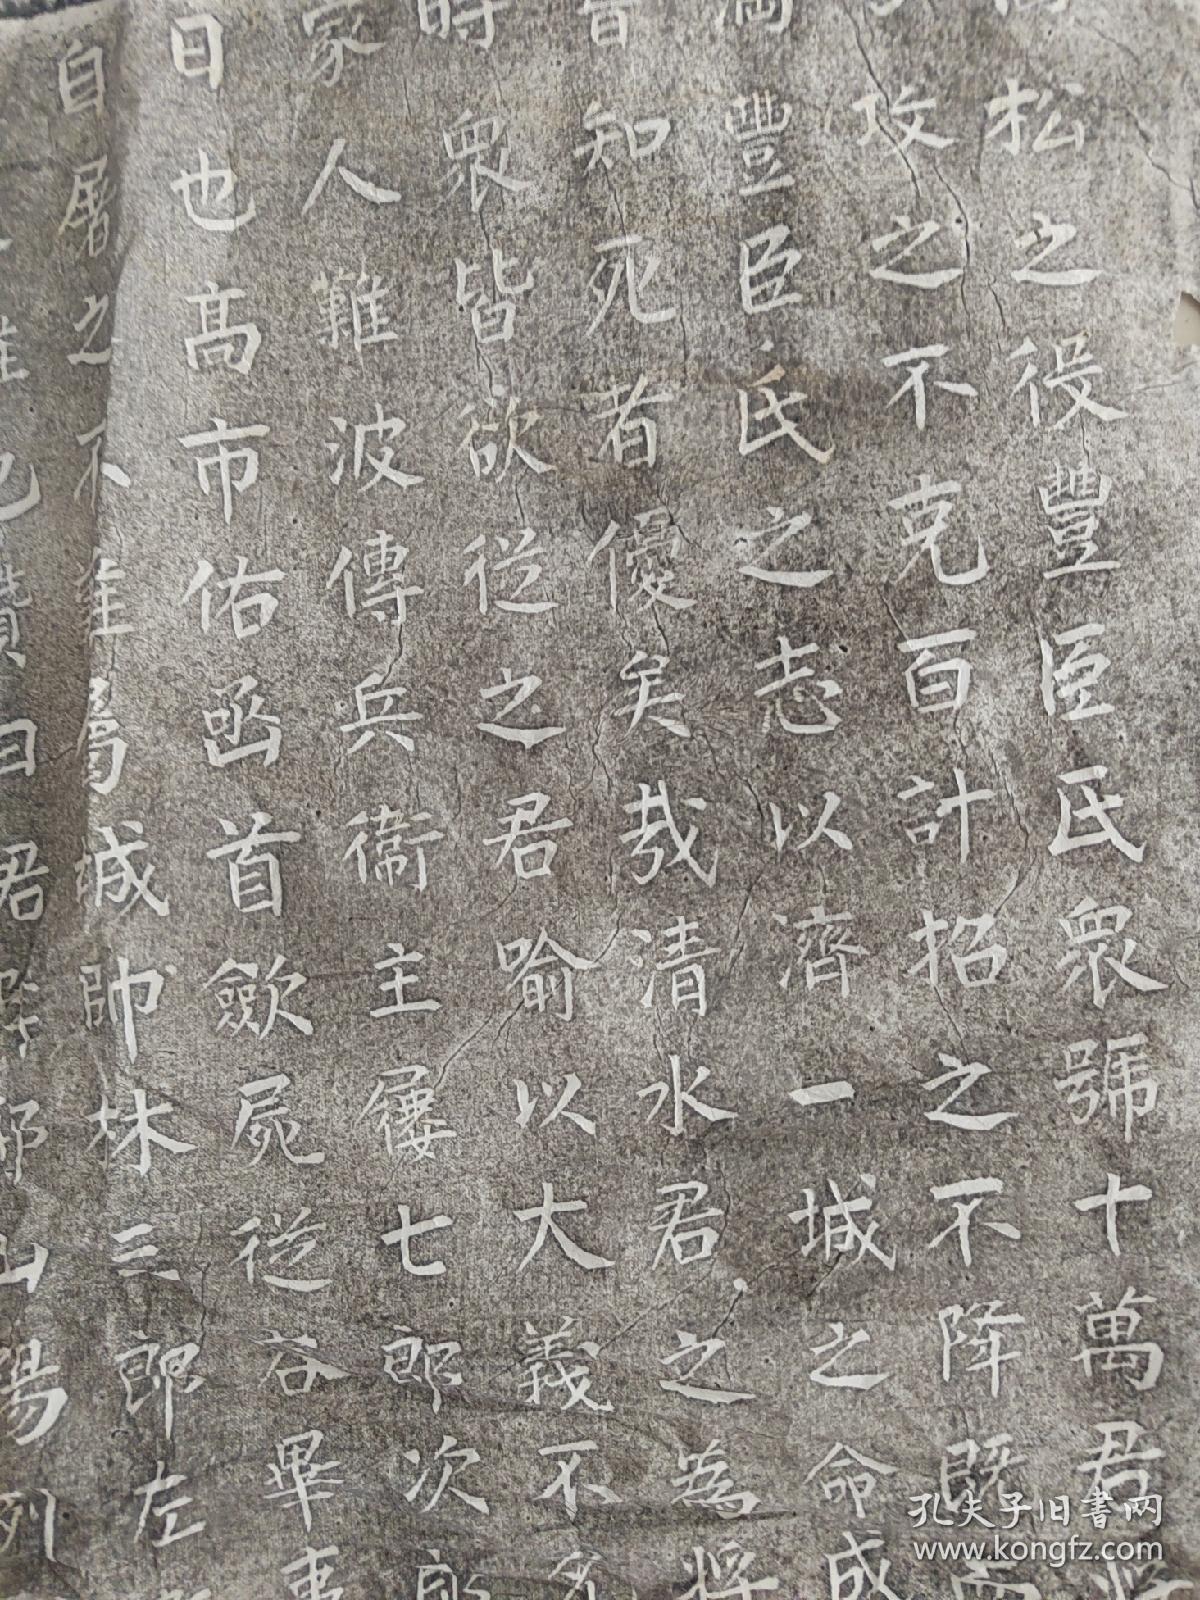 松之役豐臣氏衆號十萬君將
攻之不克百計招之不降既而
豐臣氏之志以濟一城之命成
知死者優矣哉清水君之為將
時衆皆欲從之君喻以大義不
家人難波傳兵衞主屨七郎次郎
日也高市佑函首斂屍從容畢事
自屠之不唯屬城帥林三郎左
贊曰君 山陽列
孔夫子旧书网
www.kongfz.com